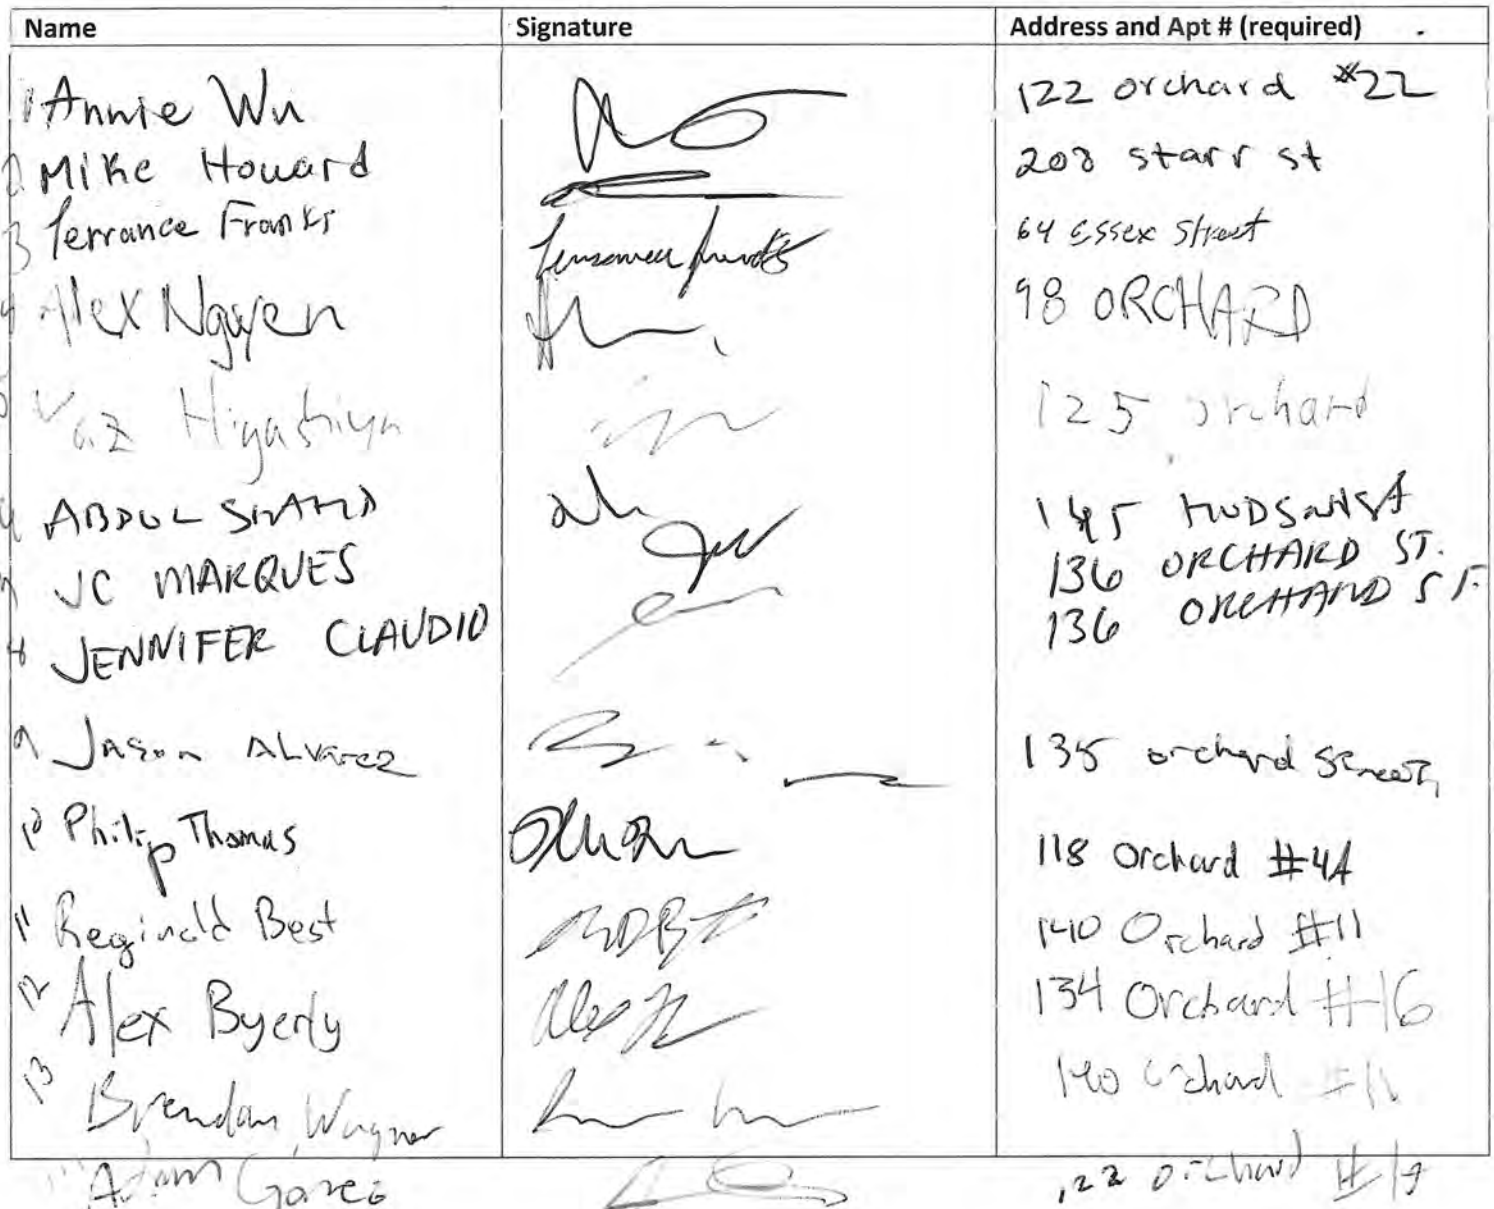 Name Signature Address and Apt # (required)
1 Annie Wu 122 orchard #22
2 Mike Howard 208 starr st
3 Terrance Franks 64 Essex Street
4 Alex Nguyen 98 ORCHARD
Higashiya 125 orchard
ABDUL 145 HUDSON ST
7 JC MARQUES 136 ORCHARD ST.
8 JENNIFER CLAUDIO 136 ORCHARD ST
9 Jason Alvarez 135 orchard Street
10 Philip Thomas 118 Orchard #4A
11 Reginald Best 140 Orchard #11
12 Alex Byerly 134 Orchard #16
13 Brendan Wagner 140 Orchard #11
Adam 122 orchard